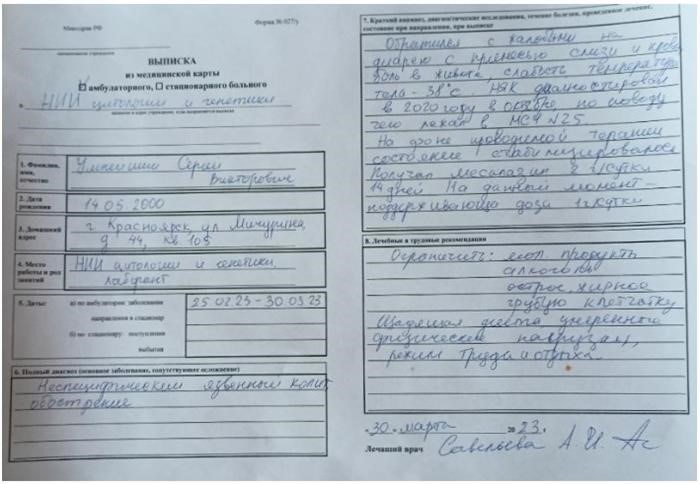 Минздрав РФ
Форма № 027/у
наименование учреждения
ВЫПИСКА
из медицинской карты
амбулаторного, стационарного больного
в НИИ цитологии и генетики
название и адрес учреждения, куда направляется выписка
1. Фамилия, имя, отчество
Сергей
Викторович
2. Дата рождения
14.05.2000
3. Домашний адрес
г. Красноярск, ул. Мичурина,
д 44, кв 105
4. Место работы и род занятий
НИИ цитологии и генетики,
лаборант
5. Даты:
а) по амбулатории заболевания
25.02.23 – 30.03.23
направления в стационар
б) по стационару: поступления
выбытия
6. Полный диагноз (основное заболевание, сопутствующее осложнение)
Неспецифический язвенный колит,
обострение
7. Краткий анамнез, диагностические исследования, течение болезни, проведенное лечение,
состояние при направлении, при выписке
Обратился с жалобами на
диарею с примесью слизи и крови,
боль в животе, слабость температура
тела - 38°С. НЯК диагностирован
в 2020 году в октябре по поводу
чего лежал в МСЧ №25.
На фоне проводимой терапии
состояние стабилизировалось
Получал месалазин 2 г/сутки
14 дней На данный момент -
поддерживающая доза 1 г/сутки
8. Лечебные и трудовые рекомендации
Ограничить: мол. продукты
алкоголь
острое, жирное
грубую клетчатку
Щадящая диета умеренного
физические нагрузки,
режим труда и отдыха.
«30» марта 2023 г.
Лечащий врач Савельева А. И.